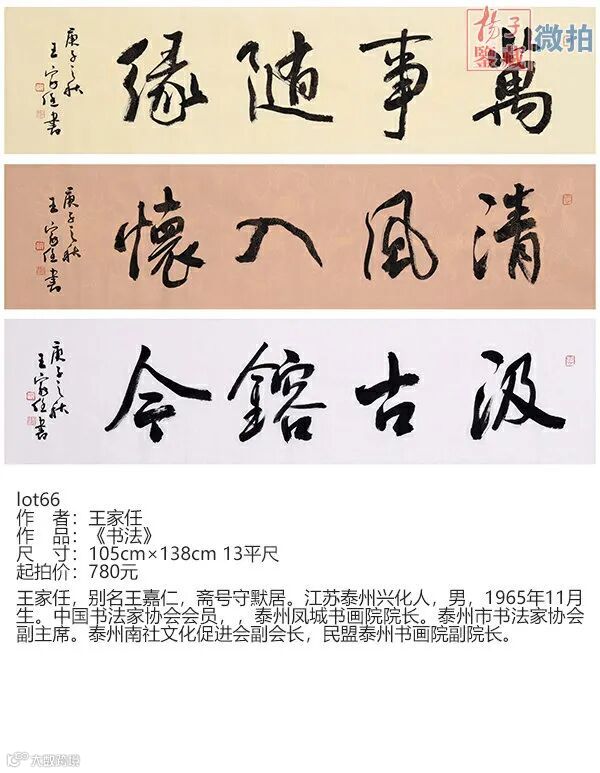 揚子 微拍
鑒藏
萬事随缘
庚子之秋
王家任書
清風入懷
庚子之秋
王家任書
汲古鎔今
庚子之秋
王家任書
lot66
作 者：王家任
作 品：《书法》
尺 寸：105cm×138cm 13平尺
起拍价：780元
王家任，别名王嘉仁，斋号守默居。江苏泰州兴化人，男，1965年11月
生。中国书法家协会会员，，泰州凤城书画院院长。泰州市书法家协会
副主席。泰州南社文化促进会副会长，民盟泰州书画院副院长。